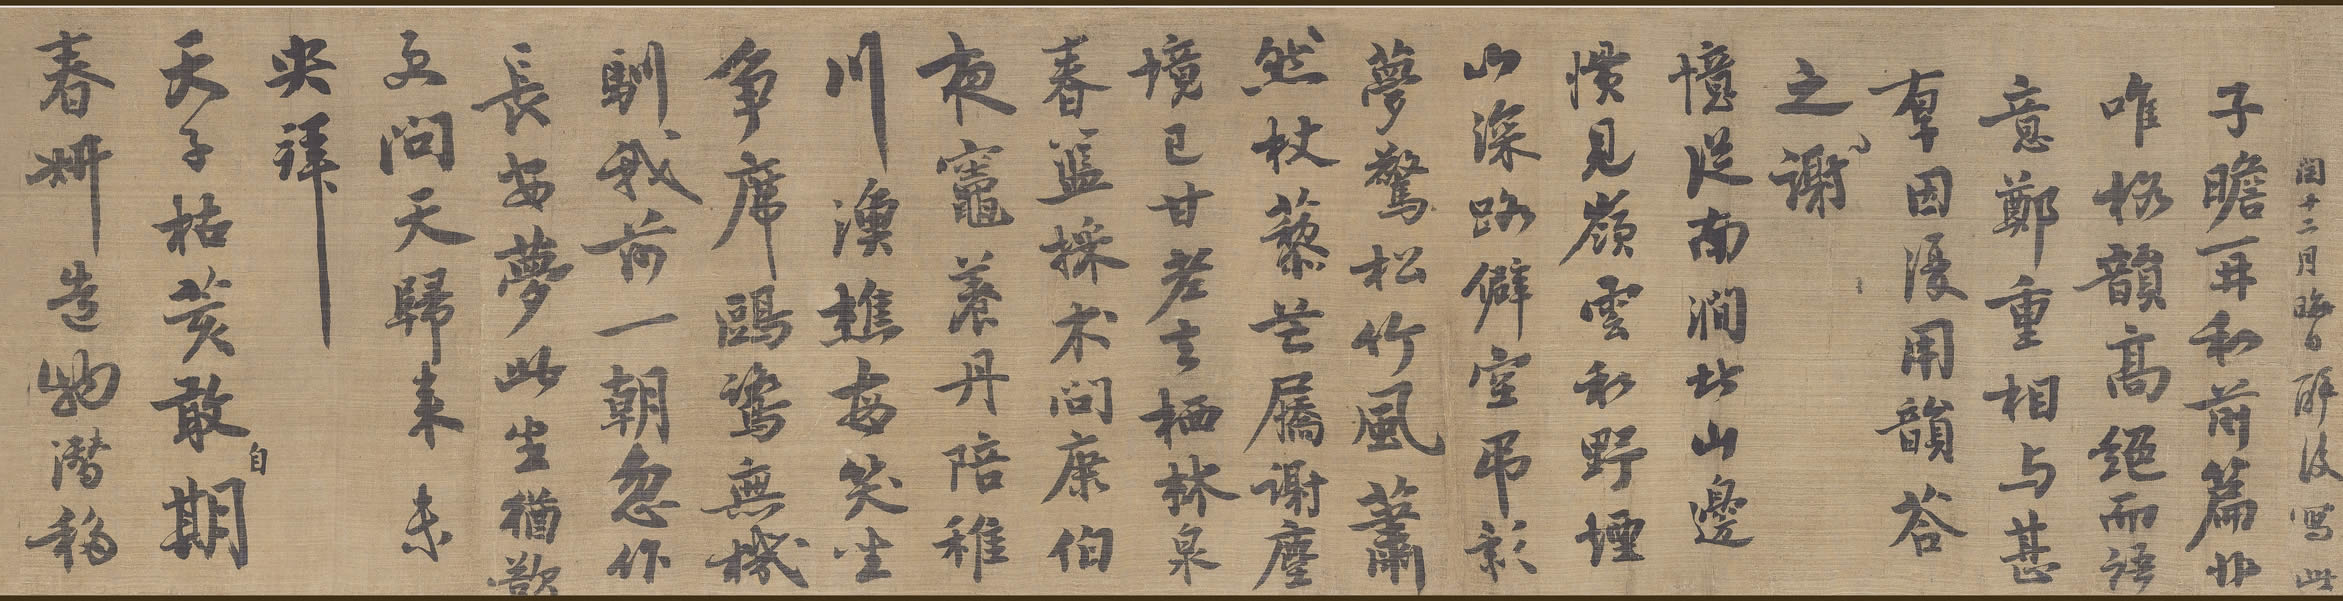 閏十二月晦日醉後寫此
子瞻再和前篇非
唯格韻高絕而語
意鄭重相与甚
厚因復用韻答
之謝
憶從南澗北山邊
慣見嶺雲和野煙
山深路僻空弔影
夢驚松竹風蕭
然杖藜芒屩謝塵
境已甘老去栖林泉
春籃採朮問康伯
夜竈養丹陪稚
川漁樵每笑坐
争席鷗鷺無機
馴我前一朝忽作
長安夢此生猶欲
更問天歸來未
央拜
天子枯荄敢自期
春妍造物潛移